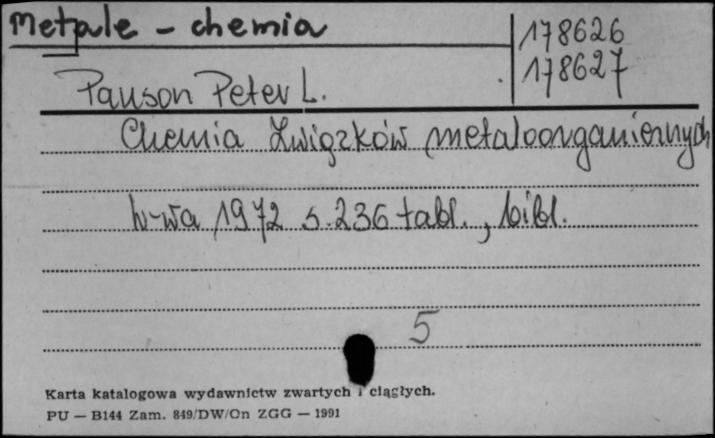 Metale - chemia
178626
178627
Pauson Peter L.
Chemia związków metaloorganicznych
W-wa 1972 s. 236 tabl., bibl.
5
Karta katalogowa wydawnictw zwartych i ciągłych.
PU — B144 Zam. 849/DW/On ZGG — 1991